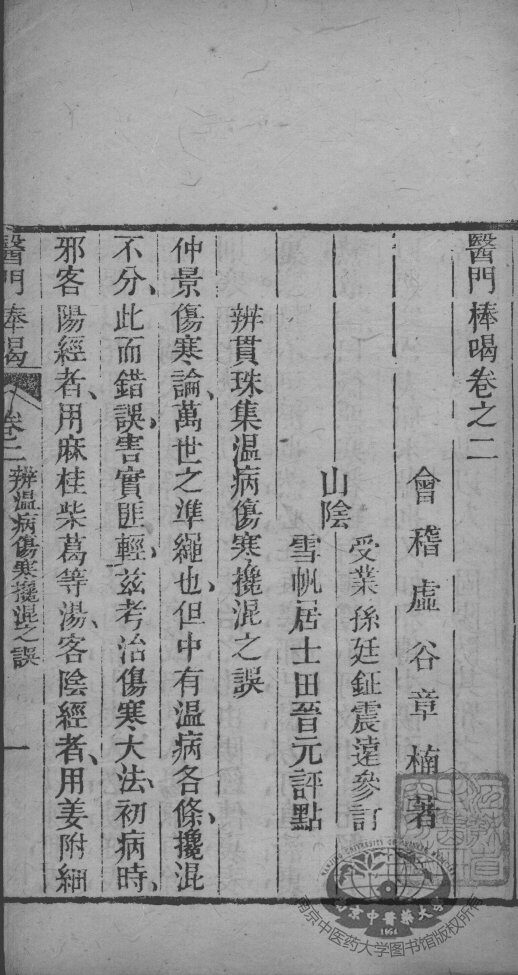 醫門棒喝卷之二
會稽虛谷章楠著
山陰
受業孫廷鉦震遠參訂
雪帆居士田晉元評點
辨貫珠集温病傷寒攙混之誤
仲景傷寒論、萬世之準繩也、但中有温病各條、攙混
不分、此而錯誤、害實匪輕、茲考治傷寒大法、初病時、
邪客陽經者、用麻桂柴葛等湯、客陰經者、用姜附細
醫門棒喝
卷二
辨温病傷寒攙混之誤
一
南京中醫藥大學
NANJING UNIVERSITY OF CHINESE MEDICINE
1954
南京中医药大学图书馆版权所有